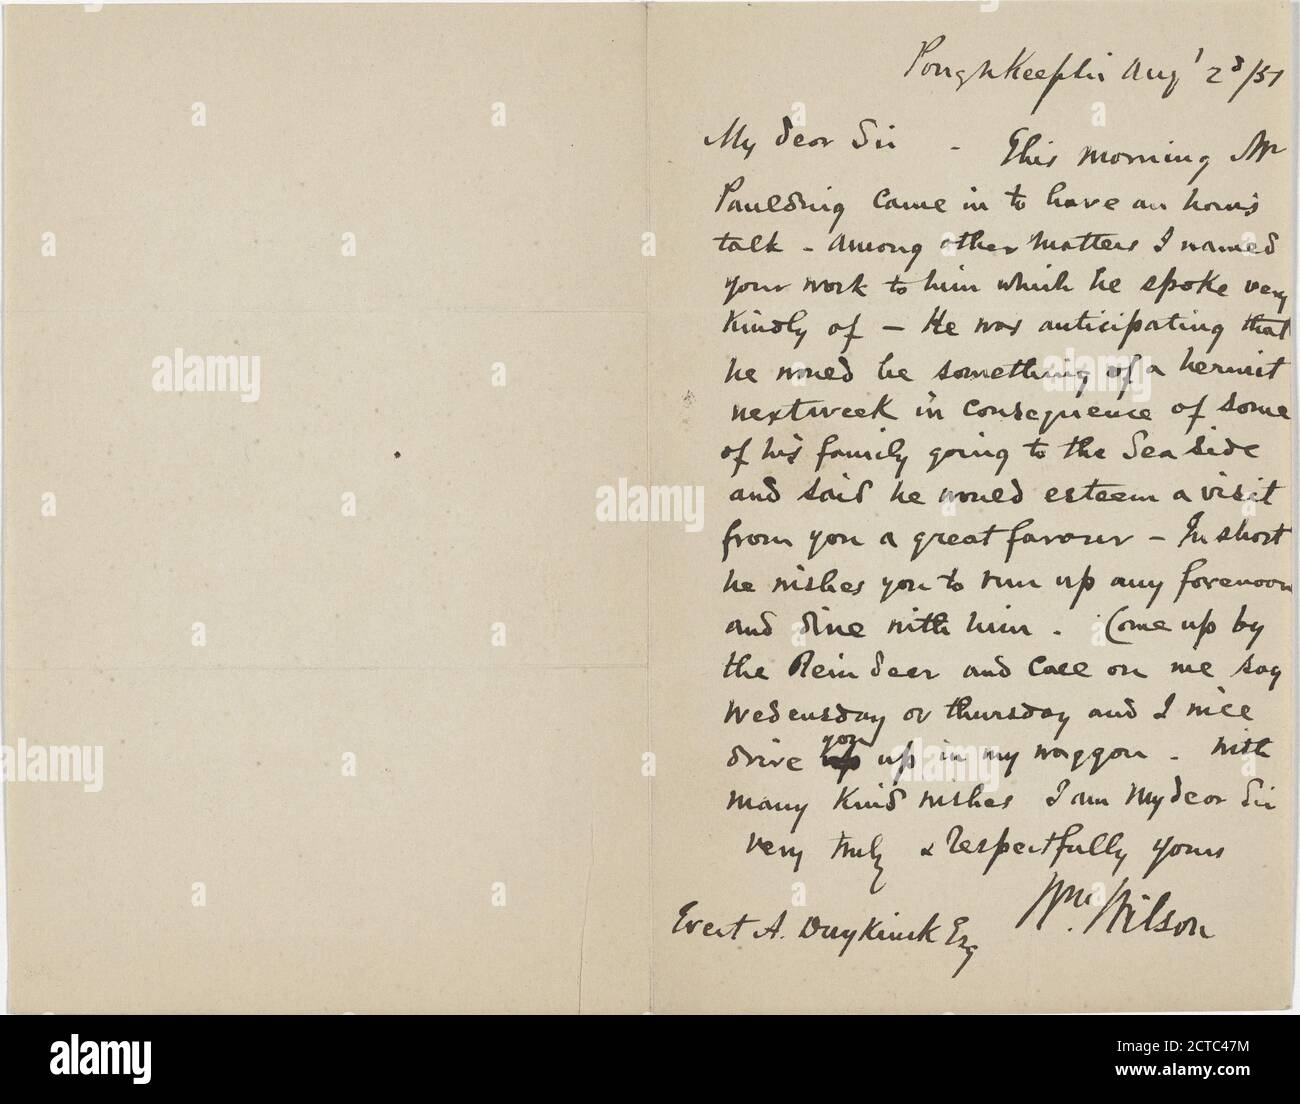 Poughkeepsie Augt 2d/51
My dear Sir - This morning Mr
Paulding came in to have an hour's
talk - Among other matters I named
your work to him which he spoke very
kindly of - He was anticipating that
he would be something of a hermit
next week in consequence of some
of his family going to the Sea side
and said he would esteem a visit
from you a great favour - In short
he wishes you to run up any forenoon
and dine with him. Come up by
the Rein deer and call on me say
Wedensday or thursday and I will
drive you up in my waggon. With
many kind wishes I am My dear Sir
very truly & Respectfully yours
Wm. Wilson
Evert A. Duykinck Esq
alamy
Image ID: 2CTC47M
www.alamy.com